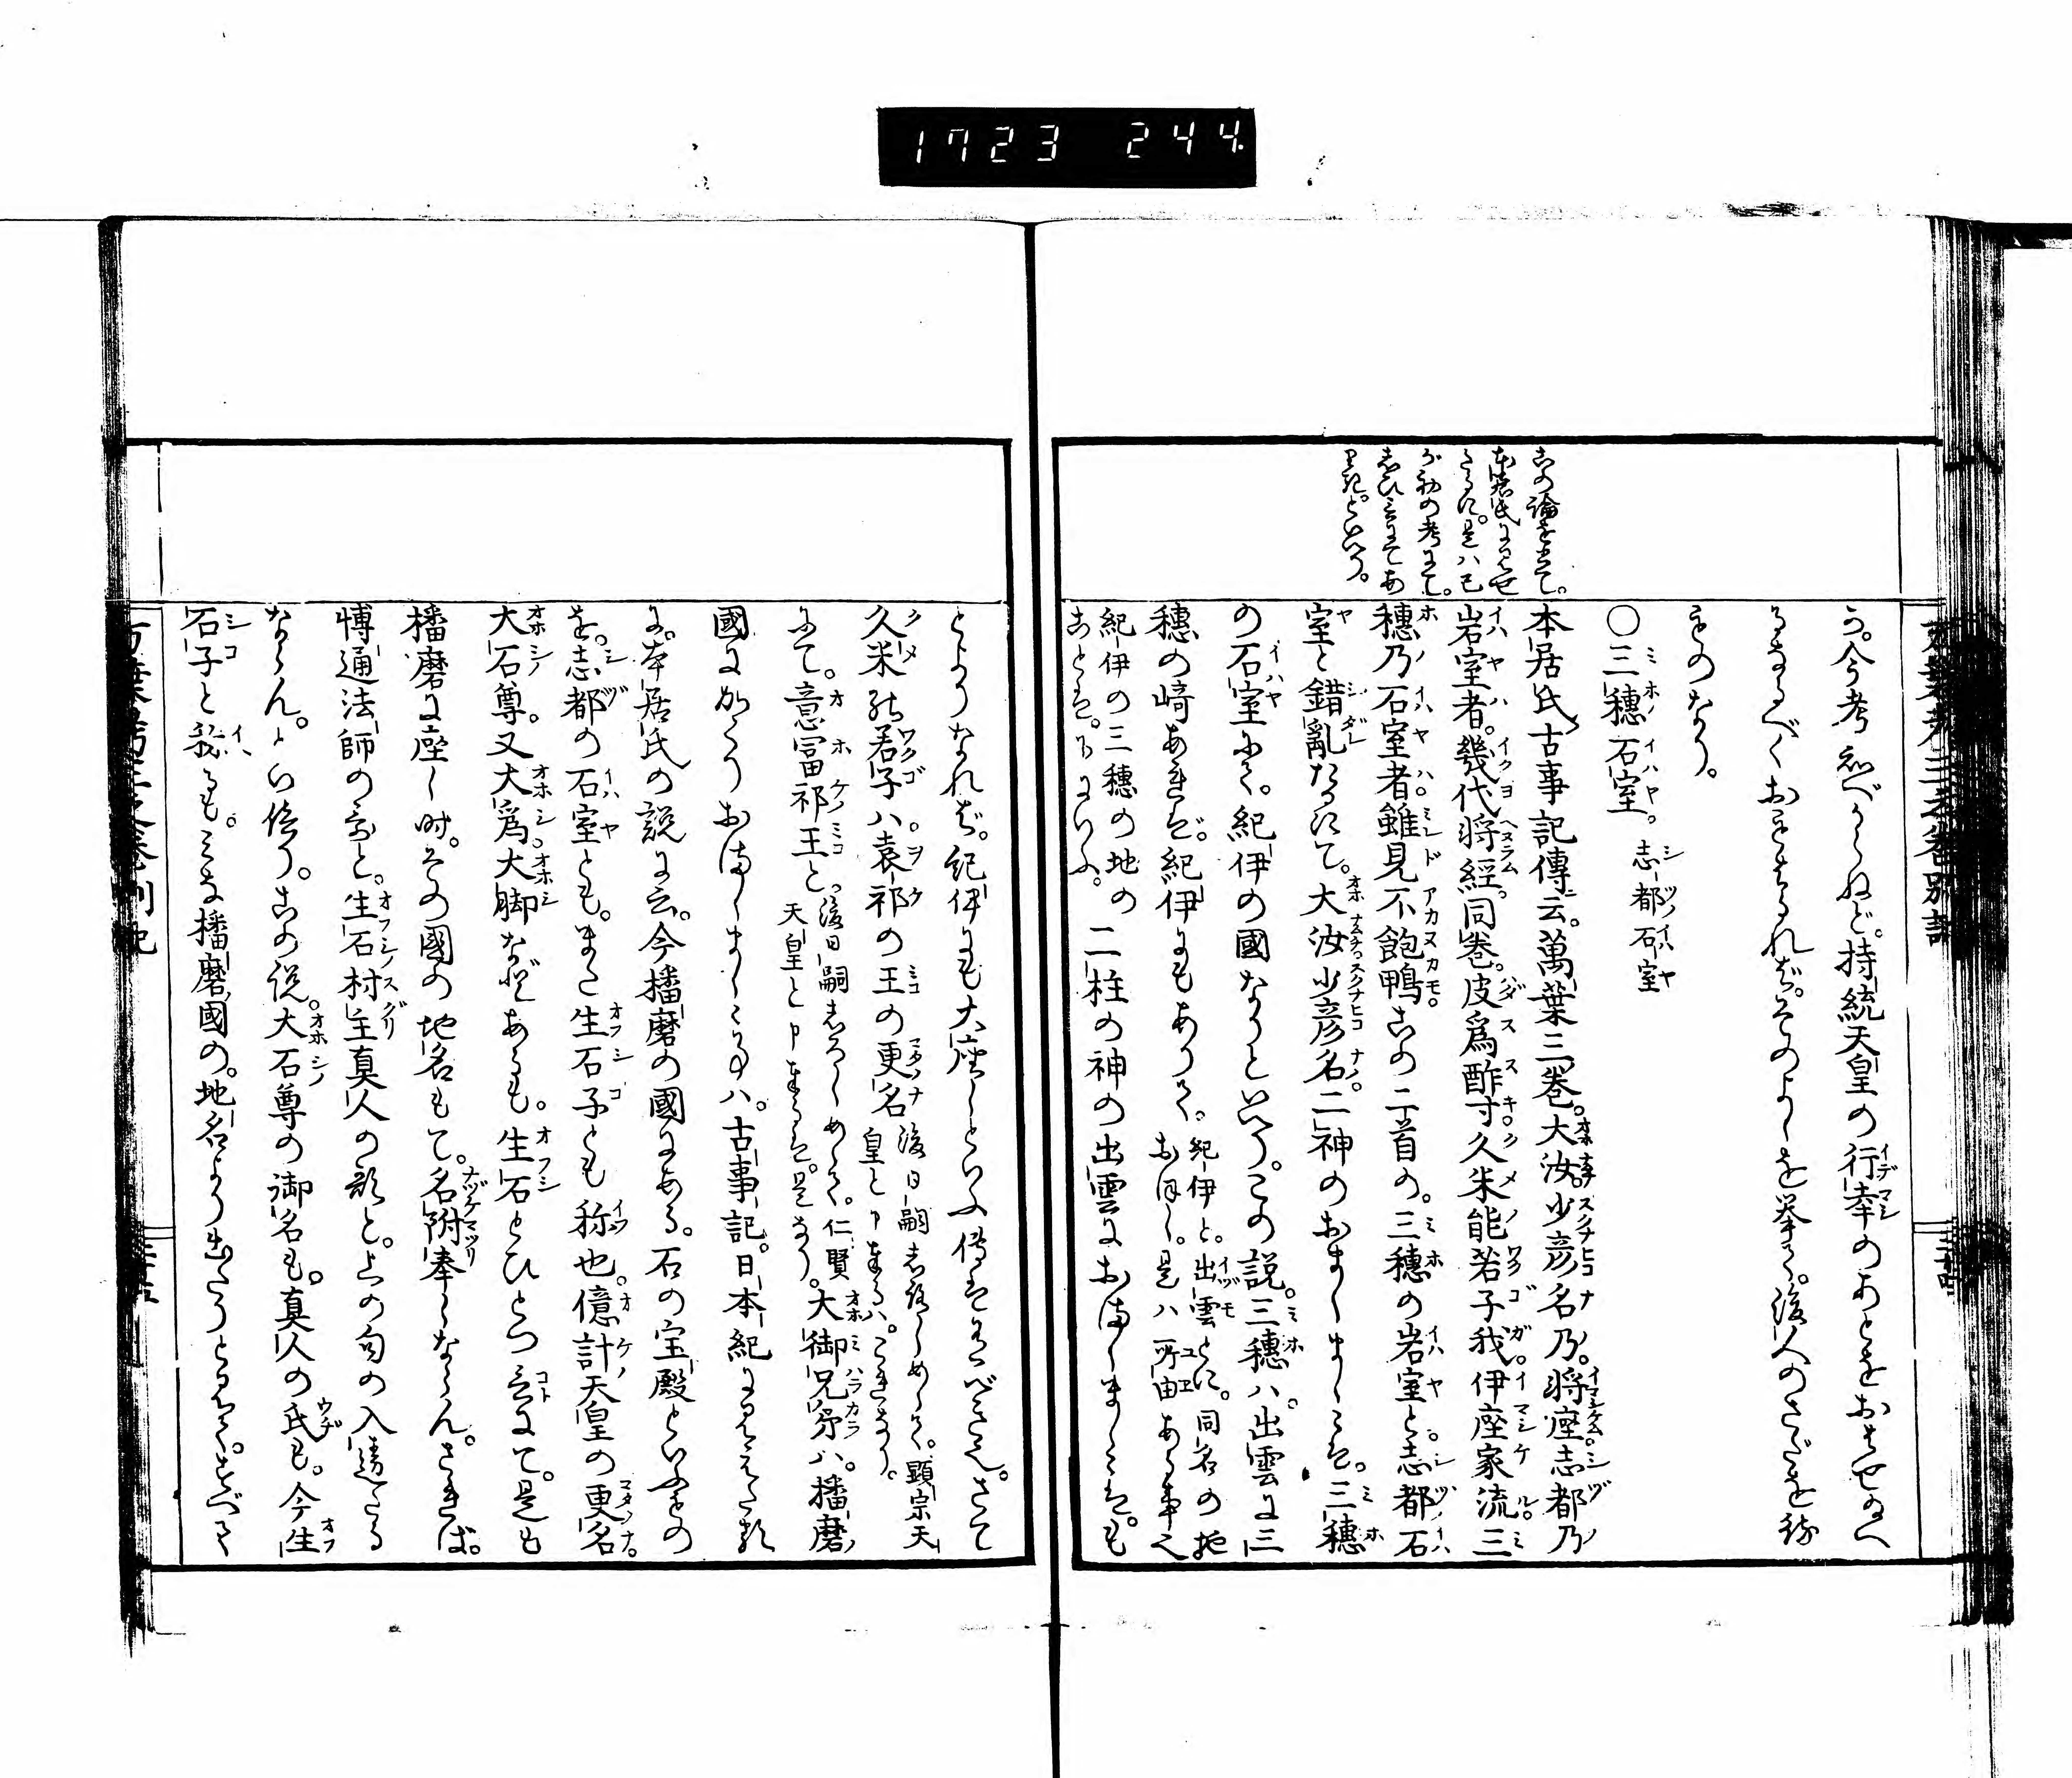 1723 244.
う。今考知べからねど。持統天皇の行幸のあとをおはせるへ
るなるべくおもはるれば。そのよしを挙て。後人のさだを待
ものなり。
〇三穂石室。志都石室
本居氏古事記傳云。萬葉三巻。大汝。少彦名乃。将座志都乃
岩室者。幾代将經。同巻。皮為酢寸久米能若子我。伊座家流三
穂乃石室者雖見不飽鴨。この二首の。三穂の岩室と。志都石
室と錯亂たるにて。大汝少彦名。二神のおましましゝは。三穂
の石室にて。紀伊の國なりといへり。この説。三穂ハ。出雲に三
穂の﨑あれど。紀伊にもありて。紀伊と。出雲とに。同名の地
おほし。是ハ所由ある事也
紀伊の三穂の地の
ことは。下にいふ。
二柱の神の出雲におはしましゝは。も
この論をして。
本居氏に見せ
たるに。是ハ己
が初の考にて。
しひ言にてあ
りき。といへり。
とよりなれば。紀伊にも大座しといふ傳はあるべきこと。さて
久米能若子ハ。袁祁の王の更名
後日嗣しろしめして。顕宗天
皇と申奉るハ。これなり。
にて。意富祁王と。
後日嗣しろしめして。仁賢
天皇と申奉るは。是なり。
大御兄弟ハ。播磨
國にかくりおはしましゝ事ハ。古事記。日本紀に見えたるを
に。本居氏の説に云。今播磨の國にある。石の宝殿といふもの
を。志都の石室とも。また生石子とも称也。億計天皇の更名
大石尊。又大為。大脚などあるも。生石とひとつ言にて。是も
播磨に座し時。その國の地名もて。名附奉しならん。されば。
博通法師の哥と。生石村主真人の歌と。上の句の入違たる
ならん。といへり。この説。大石尊の御名も。真人の氏も。今生
石子と称るも。みな播磨國の。地名より出たりと見えて。すべて